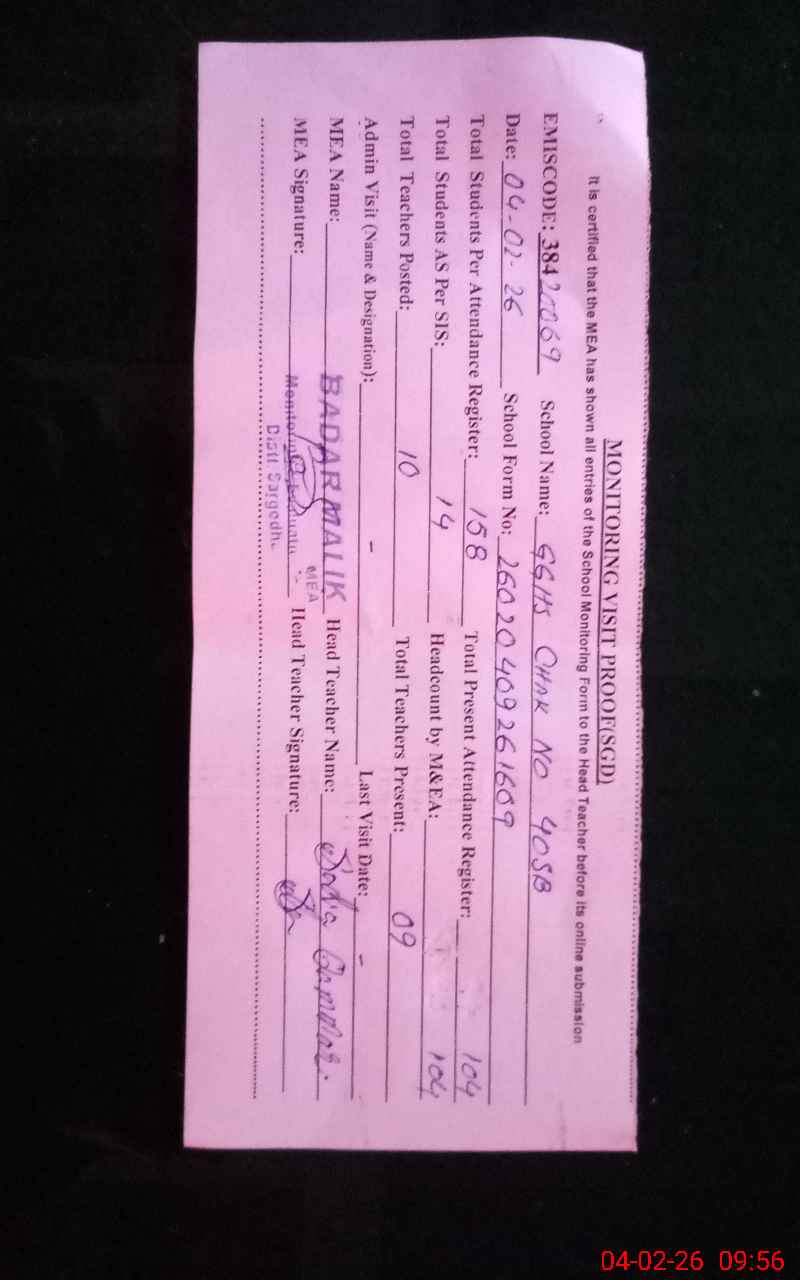 MONITORING VISIT PROOF(SGD)
It is certified that the MEA has shown all entries of the School Monitoring Form to the Head Teacher before its online submission
EMISCODE: 38420069 School Name: GGHS CHAK NO 40SB
Date: 04-02-26 School Form No: 26020409261609
Total Students Per Attendance Register: 158 Total Present Attendance Register: 104
Total Students AS Per SIS: 14 Headcount by M&EA: 104
Total Teachers Posted: 10 Total Teachers Present: 09
Admin Visit (Name & Designation): - Last Visit Date: -
MEA Name: BADAR MALIK MEA Head Teacher Name: Sadia
MEA Signature: Monitoring Head Teacher Signature:
Distt. Sargodh.
04-02-26 09:56